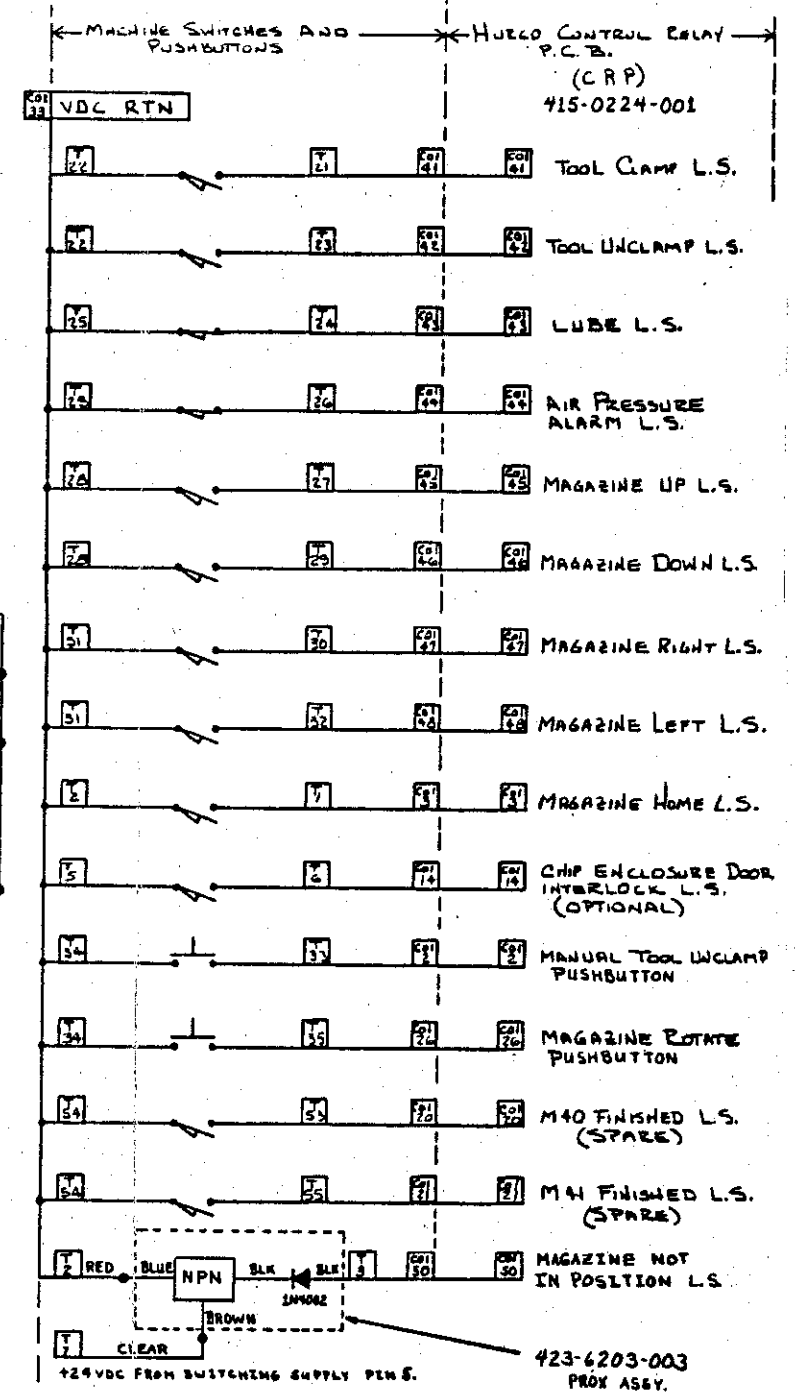 MACHINE SWITCHES AND
PUSHBUTTONS
HURCO CONTROL RELAY
P.C.B.
(CRP)
415-0224-001
C01
33
VDC RTN
T
22
T
21
C01
41
C01
41
TOOL CLAMP L.S.
T
22
T
23
C01
42
C01
42
TOOL UNCLAMP L.S.
T
25
T
24
C01
43
C01
43
LUBE L.S.
T
25
T
26
C01
44
C01
44
AIR PRESSURE
ALARM L.S.
T
28
T
27
C01
45
C01
45
MAGAZINE UP L.S.
T
28
T
29
C01
46
C01
46
MAGAZINE DOWN L.S.
T
31
T
30
C01
47
C01
47
MAGAZINE RIGHT L.S.
T
31
T
32
C01
48
C01
48
MAGAZINE LEFT L.S.
T
2
T
1
C01
3
C01
3
MAGAZINE HOME L.S.
T
5
T
6
C01
14
C01
14
CHIP ENCLOSURE DOOR
INTERLOCK L.S.
(OPTIONAL)
T
34
T
33
C01
2
C01
2
MANUAL TOOL UNCLAMP
PUSHBUTTON
T
34
T
35
C01
26
C01
26
MAGAZINE ROTATE
PUSHBUTTON
T
54
T
53
C01
20
C01
20
M40 FINISHED L.S.
(SPARE)
T
54
T
55
C01
21
C01
21
M41 FINISHED L.S.
(SPARE)
T
2
RED
BLUE
NPN
BLK
BLK
1N4002
T
3
C01
50
C01
50
MAGAZINE NOT
IN POSITION L.S
BROWN
T
CLEAR
+24VDC FROM SWITCHING SUPPLY PIN 5.
423-6203-003
PROX ASSY.